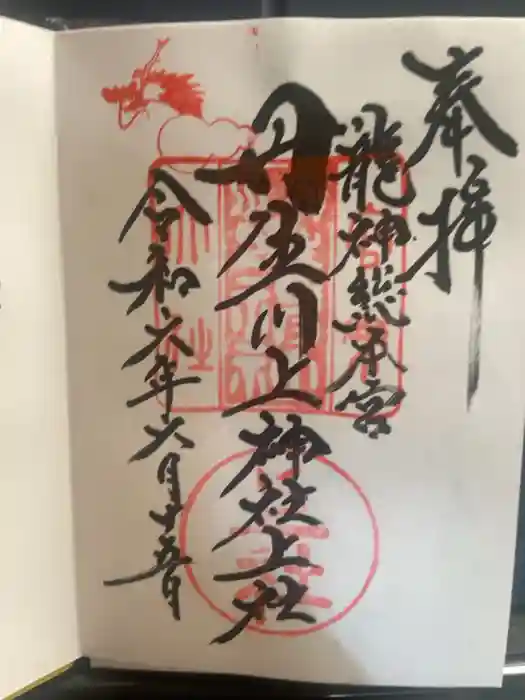 奉拝
龍神総本宮
丹生川上神社上社
令和六年六月十五日